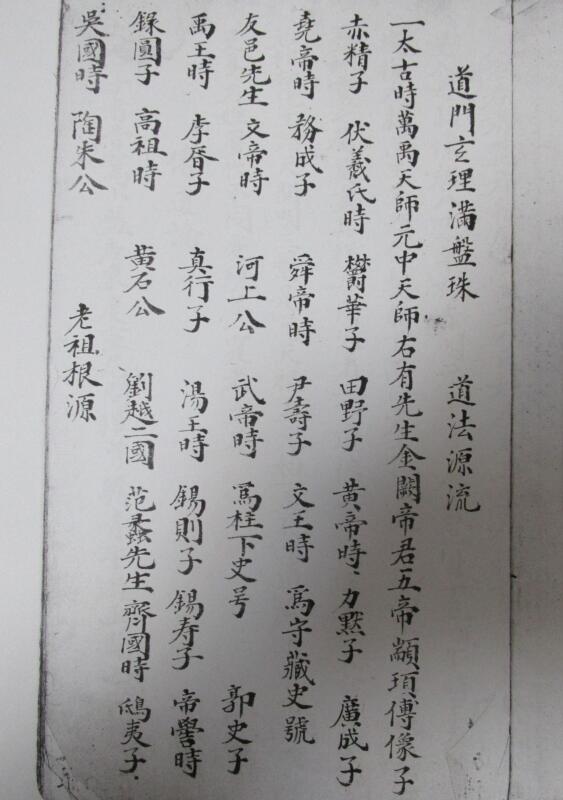 道門玄理滿盤珠 道法源流
一太古時萬禹天師元中天師右有先生金闕帝君五帝顓頊傅像子
赤精子 伏羲氏時 欝華子 田野子 黃帝時、力黙子 廣成子
堯帝時 務成子 舜帝時 尹壽子 文王時 爲守藏史號
友邑先生 文帝時 河上公 武帝時 爲柱下史号 郭史子
禹王時 李胥子 真行子 湯王時 錫則子 錫寿子 帝嚳時
錄圓子 高祖時 黃石公 劉越二國 范蠡先生 齊國時 鴟夷子.
吳國時 陶朱公 老祖根源